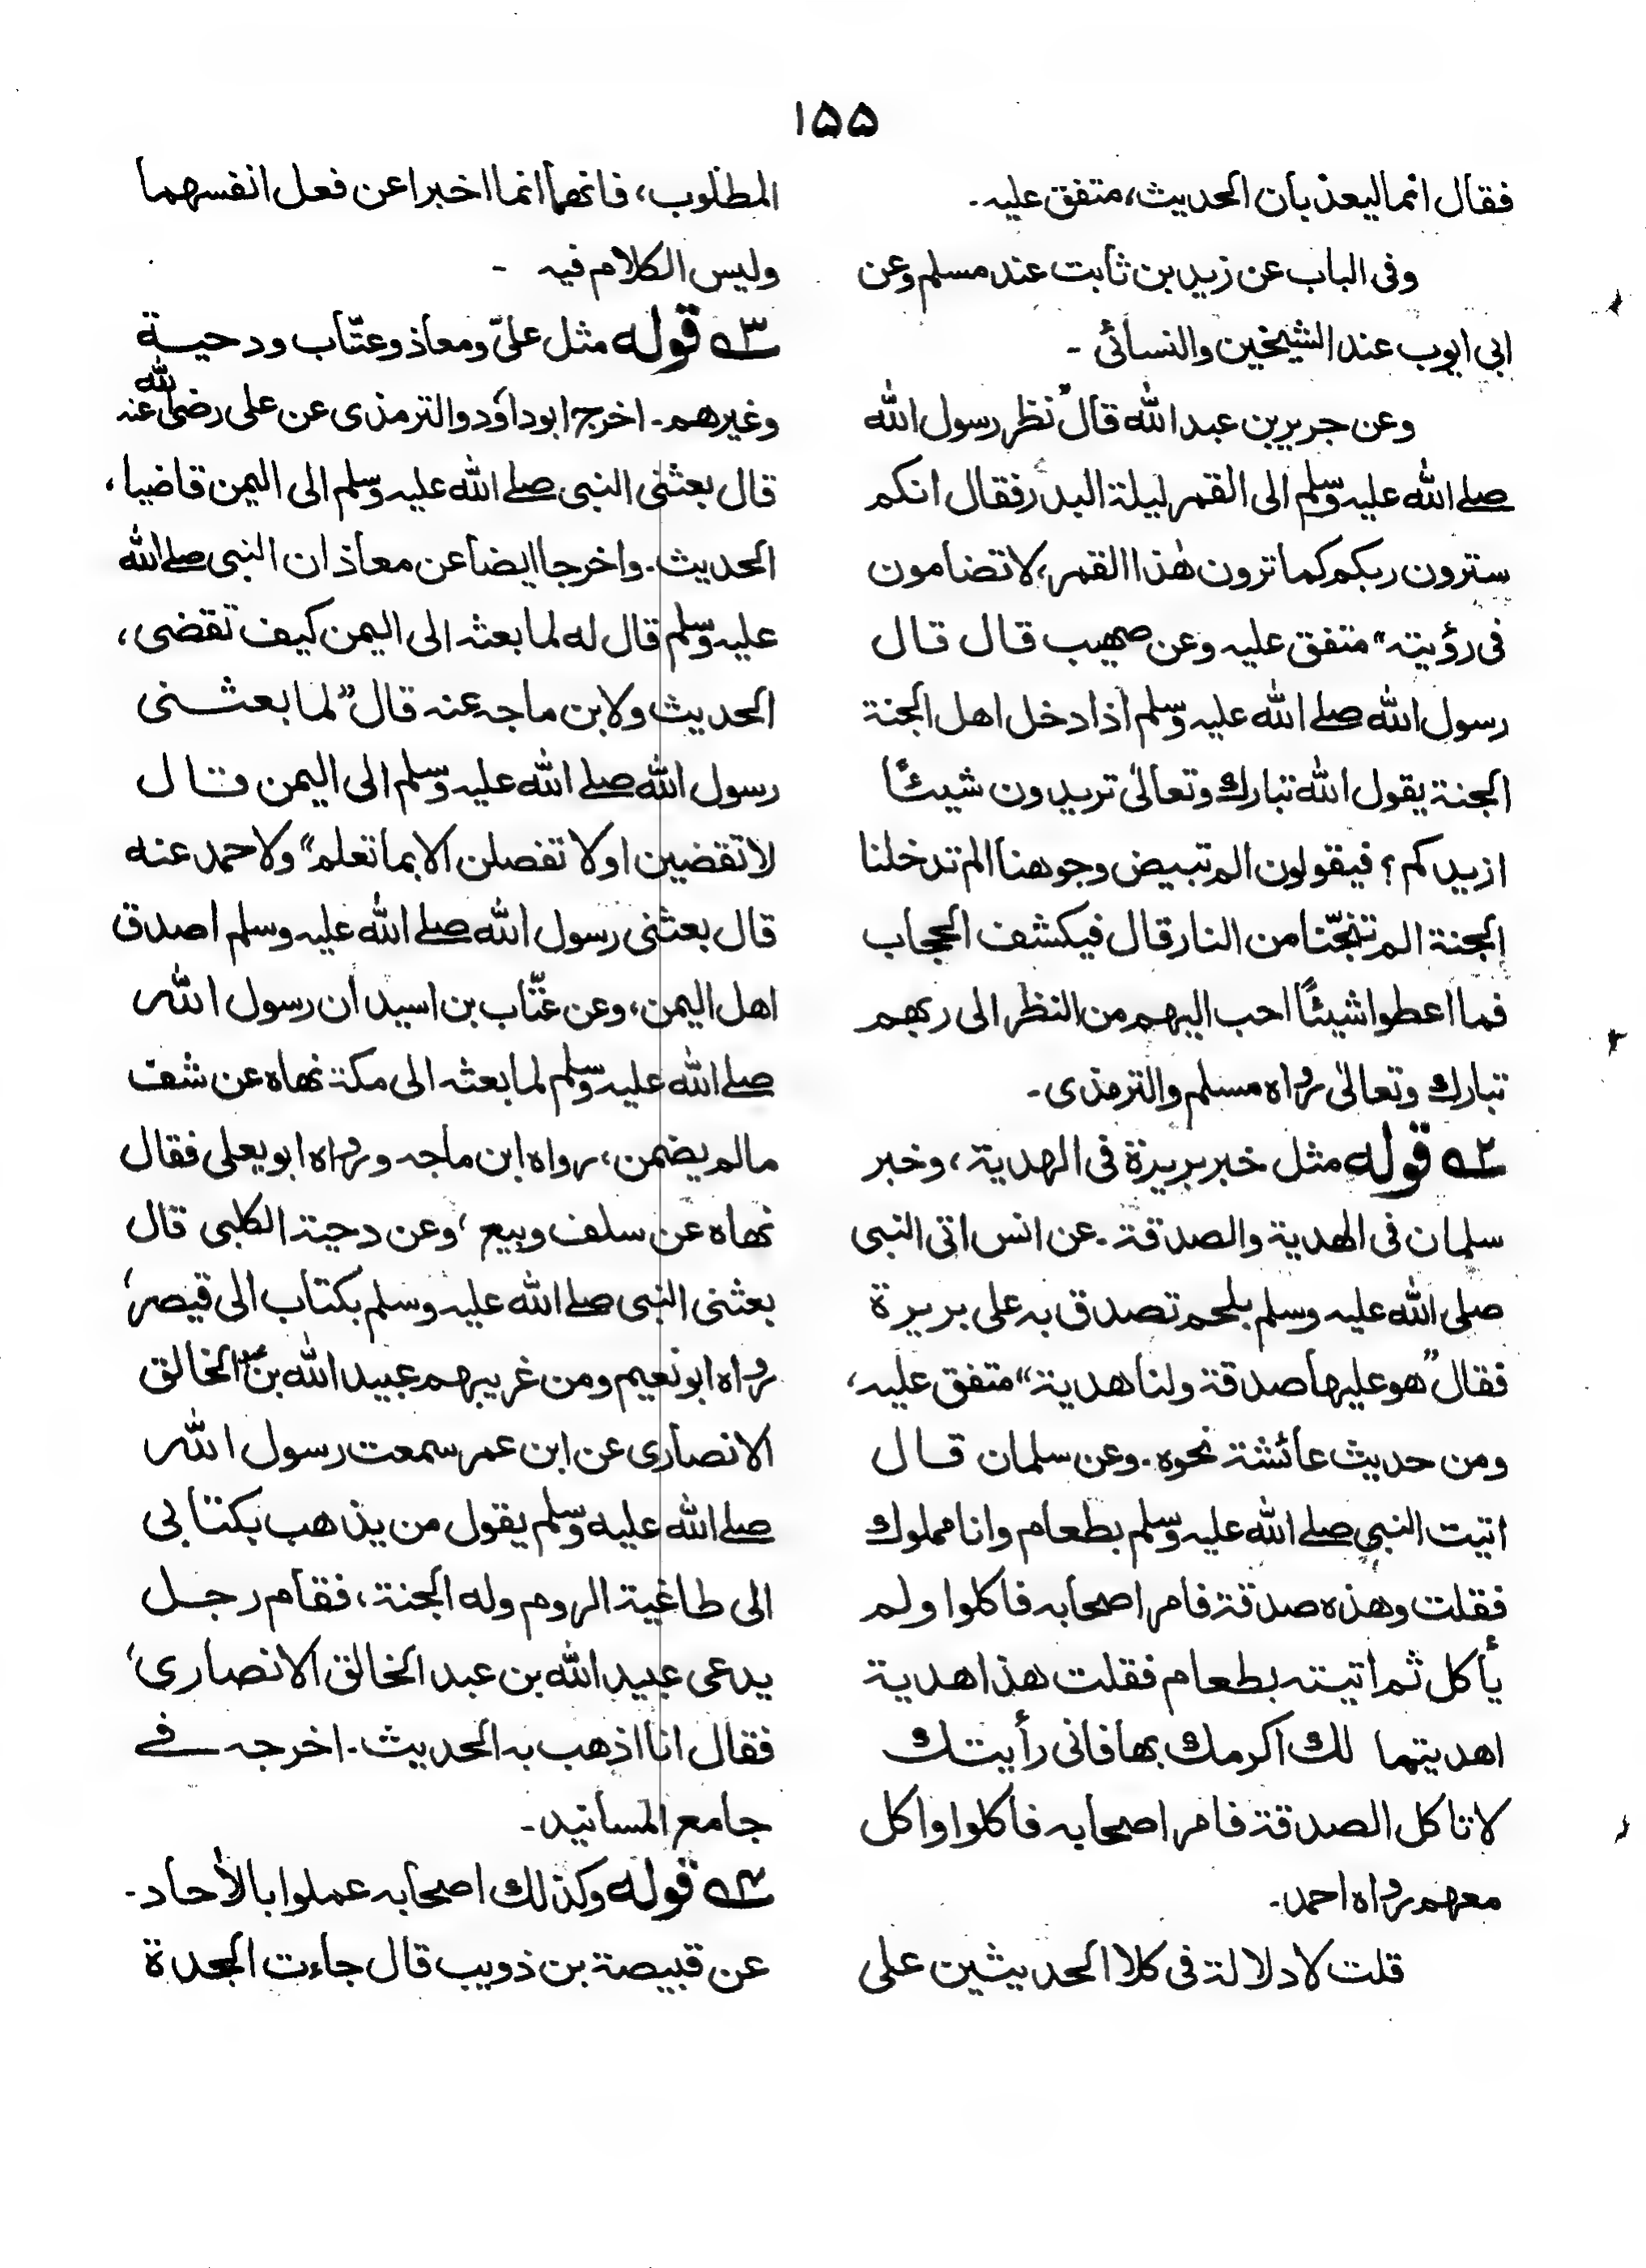 ۱۵۵
فقال انما ليعذبان الحديث، متفق عليه۔
وفى الباب عن زيد بن ثابت عند مسلم وعن
ابى ايوب عند الشيخين والنسائى ۔
وعن جرير بن عبد الله قال "نظر رسول الله
صلے الله عليه وسلم الى القمر ليلة البدر فقال انكم
سترون ربكم كما ترون هٰذا القمر، لا تضامون
فى رؤيته" متفق عليه وعن صهيب قال قال
رسول الله صلے الله عليه وسلم اذا دخل اهل الجنة
الجنة يقول الله تبارك وتعالىٰ تريدون شيئًا
ازيدكم؟ فيقولون الم تبيض وجوهنا الم تدخلنا
الجنة الم تنجّنا من النار قال فيكشف الحجاب
فما اعطوا شيئًا احب اليهم من النظر الى ربهم
تبارك وتعالىٰ رواه مسلم والترمذى۔
۲ـه قوله مثل خبر بريرة فى الهدية، وخبر
سلمان فى الهدية والصدقة۔ عن انس اتى النبى
صلى الله عليه وسلم بلحم تصدق به على بريرة
فقال "هو عليها صدقة ولنا هدية" متفق عليه،
ومن حديث عائشة نحوه۔ وعن سلمان قال
اتيت النبى صلے الله عليه وسلم بطعام وانا مملوك
فقلت وهذه صدقة فامر اصحابه فاكلوا ولم
يأكل ثم اتيته بطعام فقلت هذا هدية
اهديتها لك اكرمك بها فانى رأيتك
لا تاكل الصدقة فامر اصحابه فاكلوا واكل
معهم رواه احمد۔
قلت لا دلالة فى كلا الحديثين على
المطلوب، فانهما انما اخبرا عن فعل انفسهما
وليس الكلام فيه ۔
۳ـه قوله مثل علىّ ومعاذ وعتّاب ودحية
وغيرهم۔ اخرج ابو داود والترمذى عن على رضى الله عنه
قال بعثنى النبى صلے الله عليه وسلم الى اليمن قاضيا،
الحديث۔ واخرجا ايضا عن معاذ ان النبى صلے الله
عليه وسلم قال له لما بعثه الى اليمن كيف تقضى،
الحديث ولابن ماجه عنه قال "لما بعثنى
رسول الله صلے الله عليه وسلم الى اليمن قال
لا تقضين او لا تفصلن الا بما تعلم" ولاحمد عنه
قال بعثنى رسول الله صلے الله عليه وسلم اصدق
اهل اليمن، وعن عتّاب بن اسيد ان رسول الله
صلے الله عليه وسلم لما بعثه الى مكة نهاه عن شف
مالم يضمن، رواه ابن ماجه ورواه ابو يعلى فقال
نهاه عن سلف وبيع، وعن دحية الكلبى قال
بعثنى النبى صلے الله عليه وسلم بكتاب الى قيصر،
رواه ابو نعيم ومن غريبهم عبيد الله بن عبد الخالق
الانصارى عن ابن عمر سمعت رسول الله
صلے الله عليه وسلم يقول من يذهب بكتابى
الى طاغية الروم وله الجنة، فقام رجل
يدعى عبيد الله بن عبد الخالق الانصارى،
فقال انا اذهب به الحديث۔ اخرجه فے
جامع المسانيد۔
۴ـه قوله وكذلك اصحابه عملوا بالاٰحاد۔
عن قبيصة بن ذويب قال جاءت الجدة